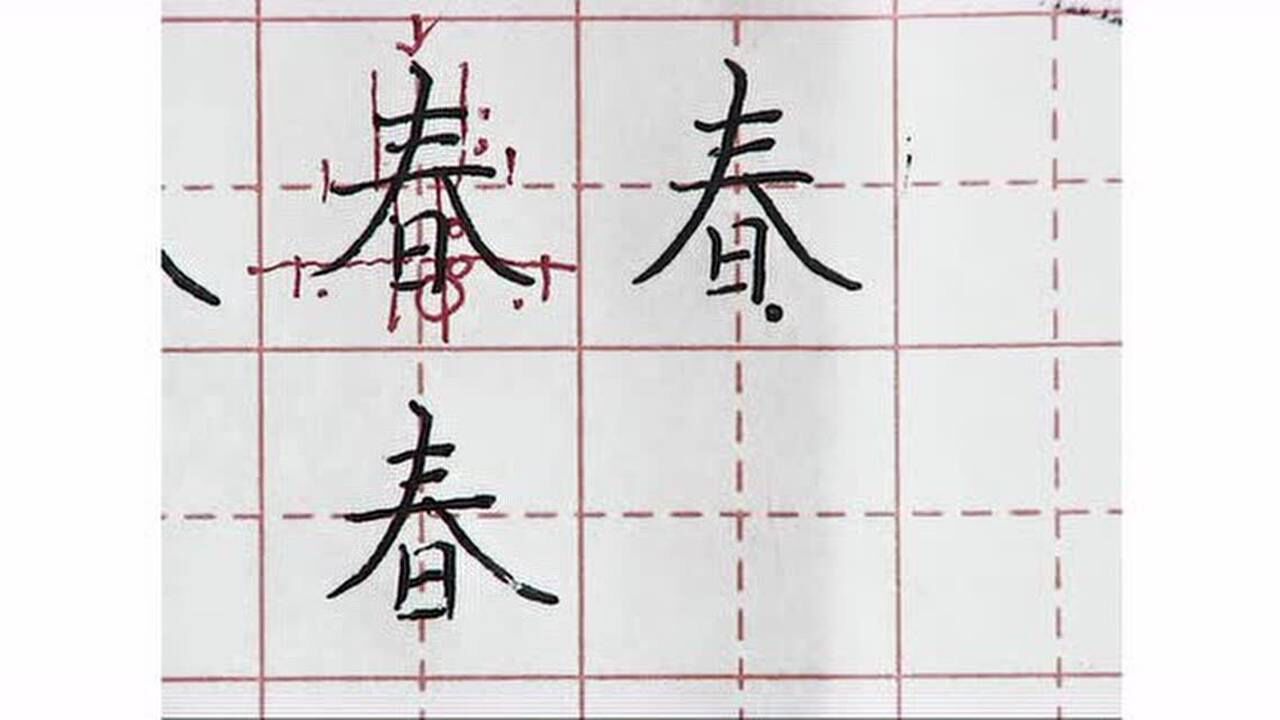 春 春
春